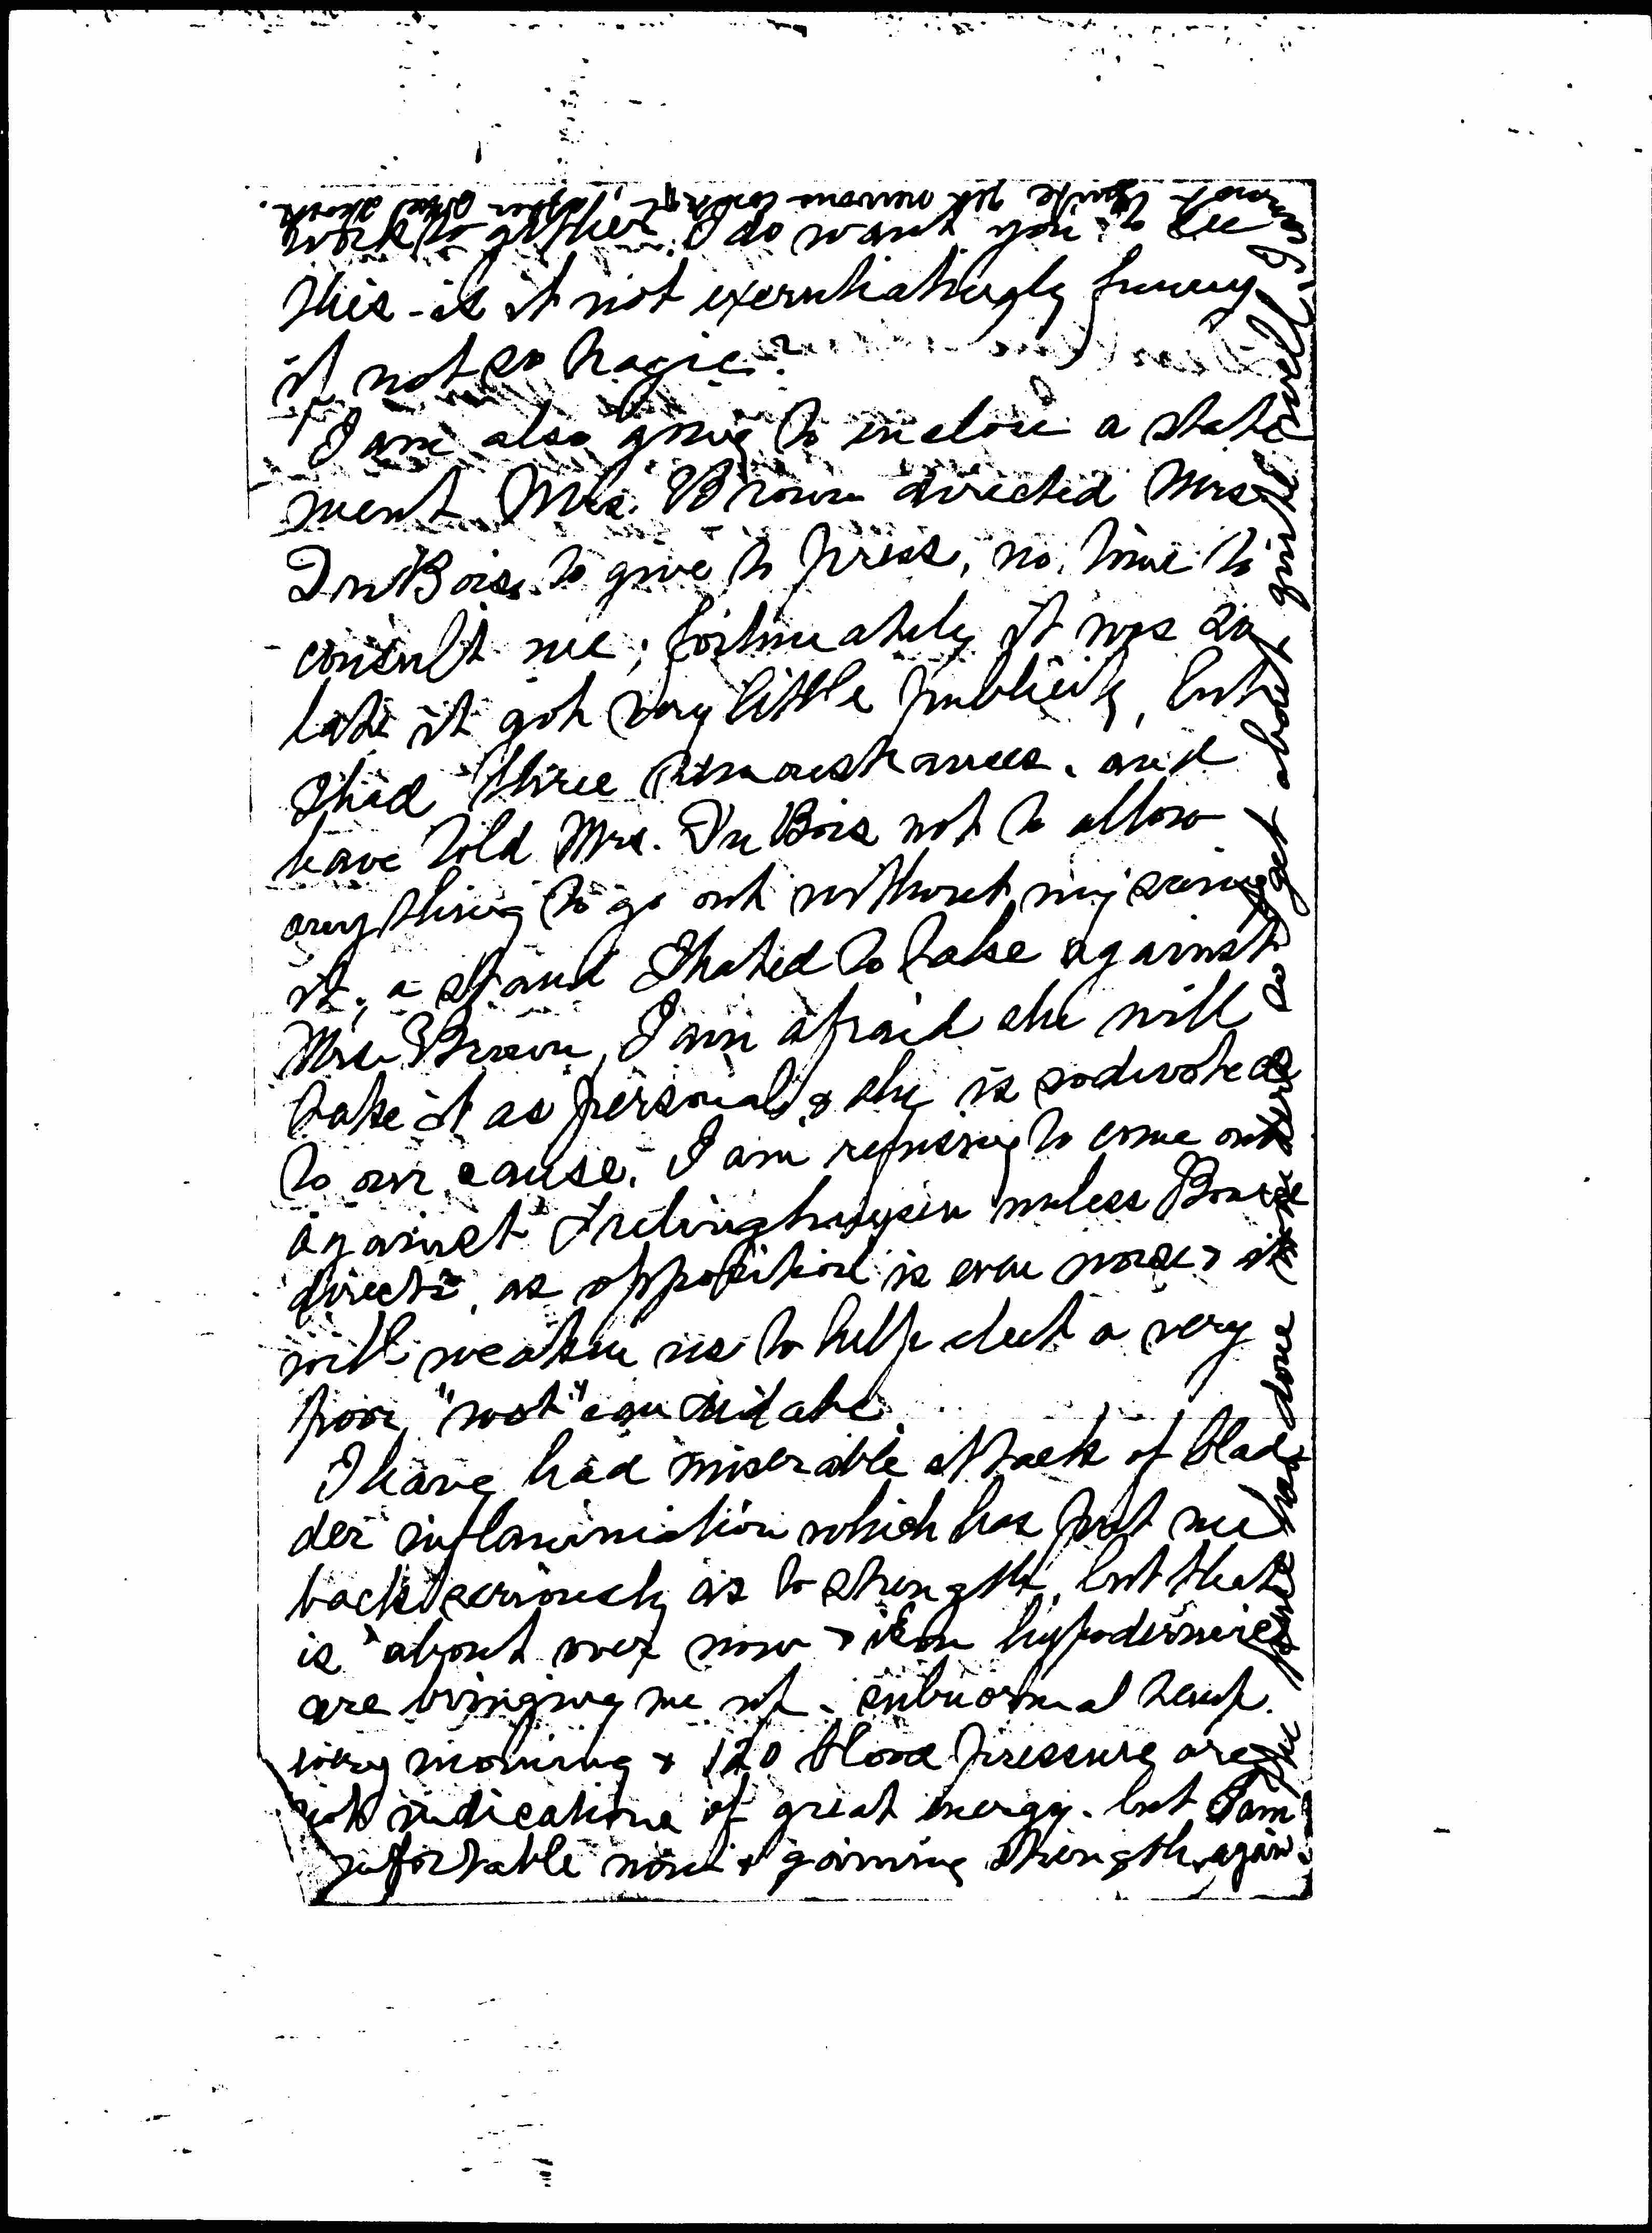 work together. I do want you to see
this - is it not excruciatingly funny
if not so tragic?
I am also going to enclose a state
ment Mrs. Brown directed Mrs
DuBois to give to press, no time to
consult me; fortunately it was so
late it got very little publicity, but
I had three remonstrances, and
have told Mrs. DuBois not to allow
anything to go out without my seeing
it, a stand I hated to take against
Mrs Brown, I am afraid she will
take it as personal & she is so devoted
to our cause. I am refusing to come out
against Frelinghuysen unless Board
directs, as opposition is even worse & it
will weaken us to help elect a very
poor "wet" candidate.
I have had miserable attack of blad
der inflammation which has put me
back seriously as to strength, but that
is about over now & iron hypodermics
are bringing me up. subnormal temp.
every morning & 120 blood pressure are
not indications of great energy. but I am
comfortable now & gaining strength again.
done so get about quite well I can
not quite yet nervous